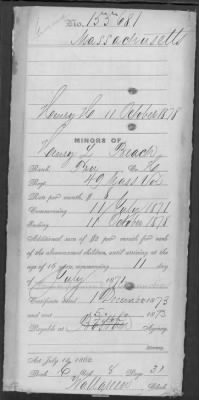 No. 155681
Massachusetts
Henry H. 11 October 1878
MINORS OF
Henry L. Beach
Rank, Co. H
Regt. 49 Mass Vol
Rate per month, $8
Commencing 11 July 1871
Ending 10 October 1878
Additional sum of $2 per month for each
of the abovenamed children, until arriving at the
age of 16 years, commencing 11 day
of July 1871
Certificate dated 1 December 1873
and sent 1873
Payable at Boston Agency.
Act July 14, 1862.
Book C Vol. 8 Page 31
Clerk.